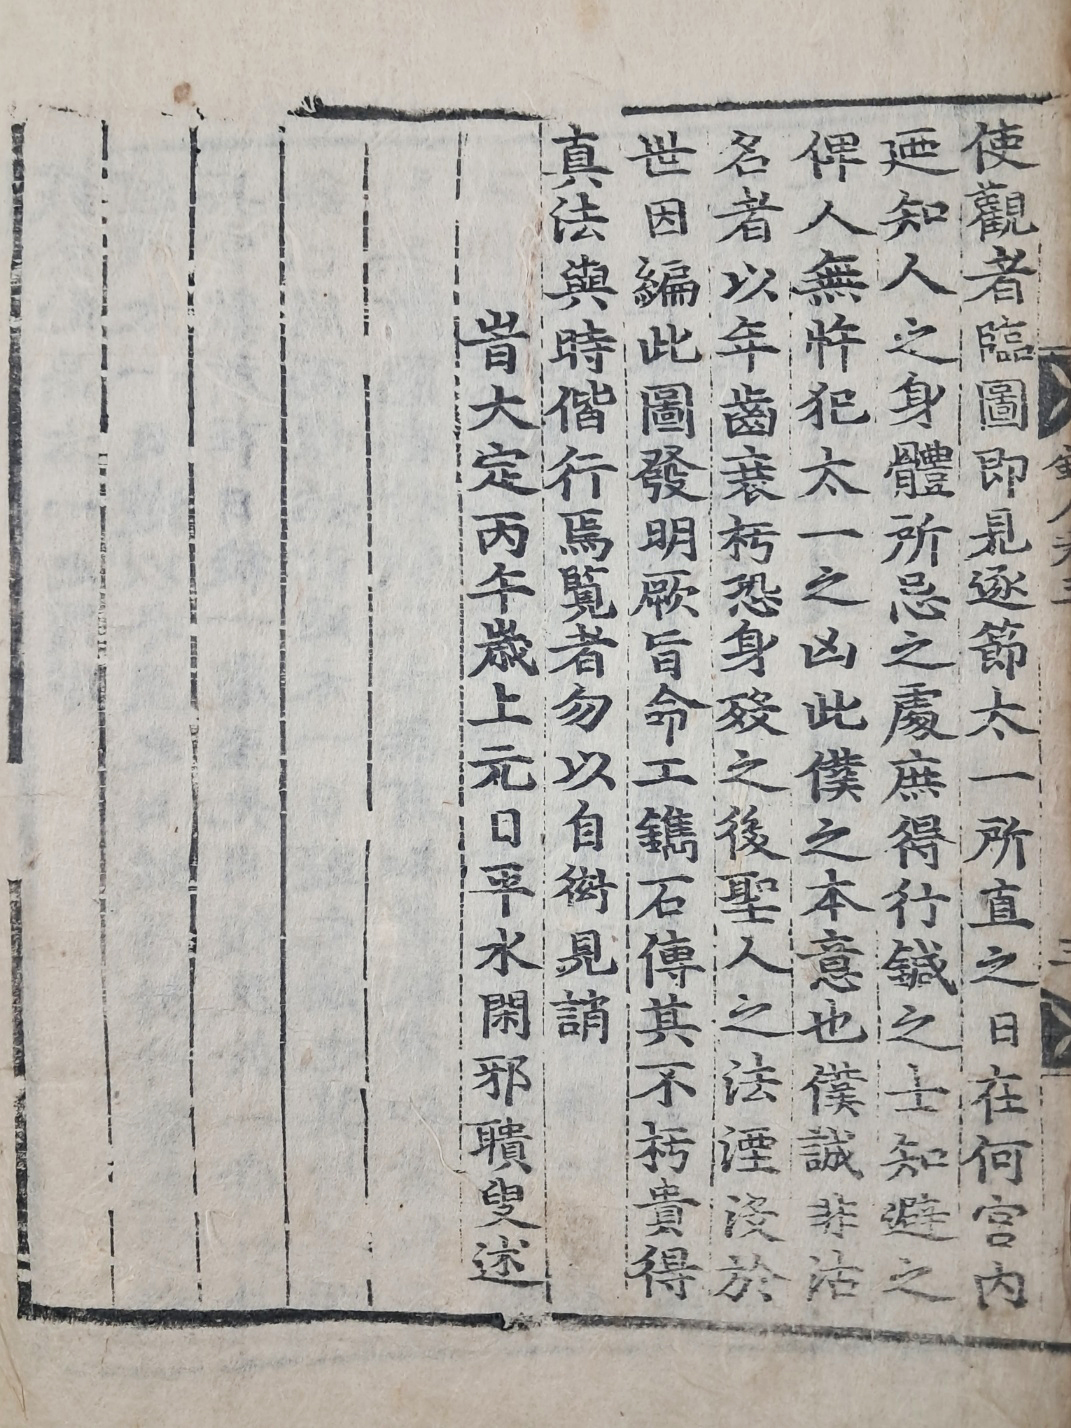 使觀者臨圖即見逐節太一所直之日在何宮內
廼知人之身體所忌之處庶得行鍼之士知避之
俾人無忤犯太一之凶此僕之本意也僕誠非沽
名者以年齒衰朽恐身歿之後聖人之法湮沒於
世因編此圖發明厥旨命工鐫石傳其不朽貴得
真法與時偕行焉覽者勿以自衒見誚
旹大定丙午歲上元日平水閑邪聵叟述